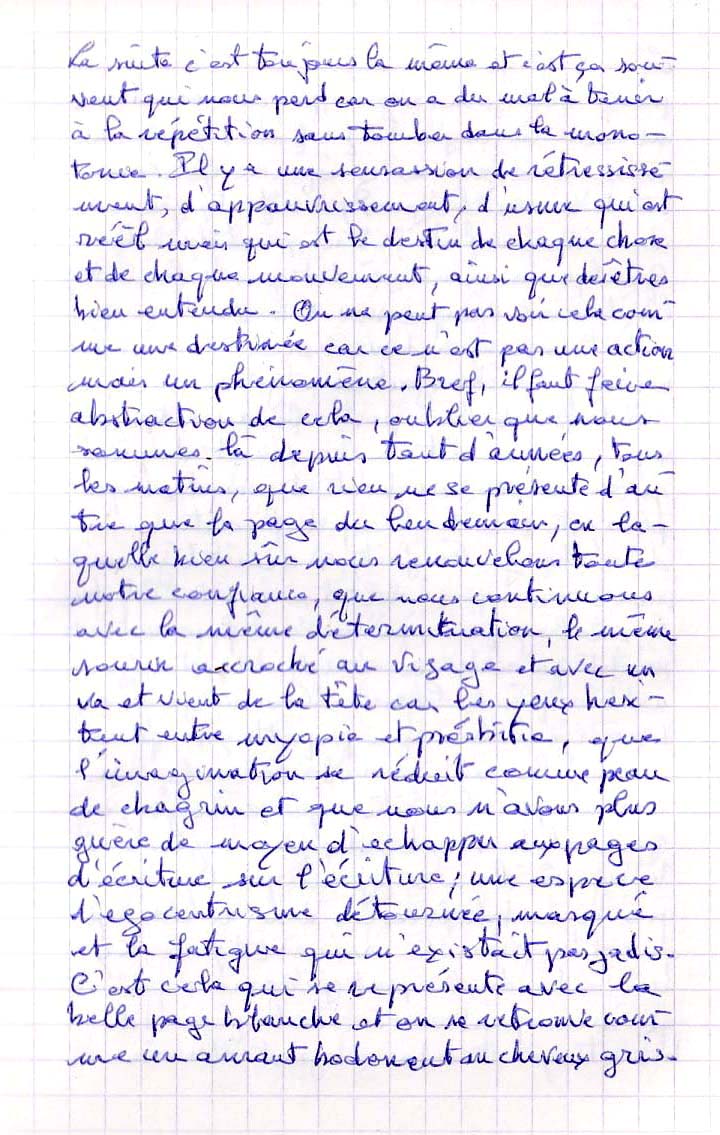 La suite c'est toujours la même et c'est ça sou-
vent qui nous perd car on a du mal à tenir
à la répétition sans tomber dans la mono-
tonie. Il y a une sensassion de rétressisse
ment, d'appauvrissement, d'usure qui est
réel mais qui est le destin de chaque chose
et de chaque mouvement, ainsi que des êtres
bien entendu. On ne peut pas voir cela com-
me une destinée car ce n'est pas une action
mais un phénomène. Bref, il faut faire
abstraction de cela, oublier que nous
sommes là depuis tant d'années, tous
les matins, que rien ne se présente d'au
tre que la page du lendemain, en la-
quelle bien sûr nous renouvelons toute
notre confiance, que nous continuons
avec la même détermination, le même
sourire accroché au visage et avec un
va et vient de la tête car les yeux hési-
tent entre myopie et presbitie, que
l'imagination se réduit comme peau
de chagrin et que nous n'avons plus
guère de moyen d'echapper aux pages
d'écriture sur l'écriture, une espèce
d'egocentrisme détournée, masqué
et la fatigue qui n'existait pas jadis.
C'est cela qui se représente avec la
belle page blanche et on se retrouve com-
me un amant bedonnant au cheveux gris.